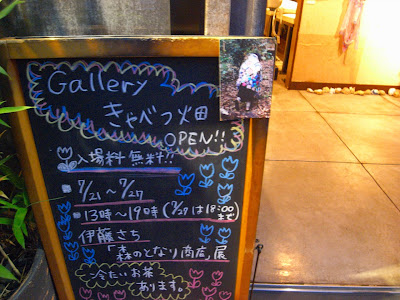 Gallery
きゃべつ畑
OPEN!!
入場料無料!!
7/21〜7/27
13時〜19時(7/27は18:00まで)
伊藤さち
「森のとなり商店」展
冷たいお茶
あります。